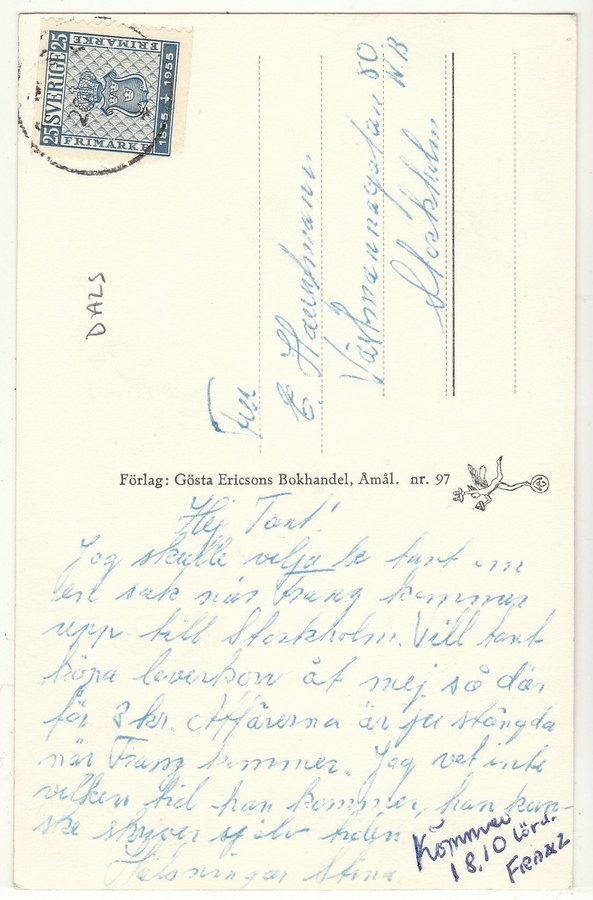 25 SVERIGE 25
FRIMÄRKE
FRIMÄRKE
1855 1955
DALS
Fru
E. Hauptmann
Västmannagatan 80
Stockholm
Förlag: Gösta Ericsons Bokhandel, Åmål. nr. 97
Hej Tant!
Jag skulle vilja be tant om
en sak när Franz kommer
upp till Stockholm. Vill tant
köpa leverkorv åt mej så där
för 3 kr. Affärerna är ju stängda
när Franz kommer. Jag vet inte
vilken tid han kommer, han kan-
ske skriver själv tiden
Hälsningar Stina
Kommer
18.10 Lörd.
FRANZ